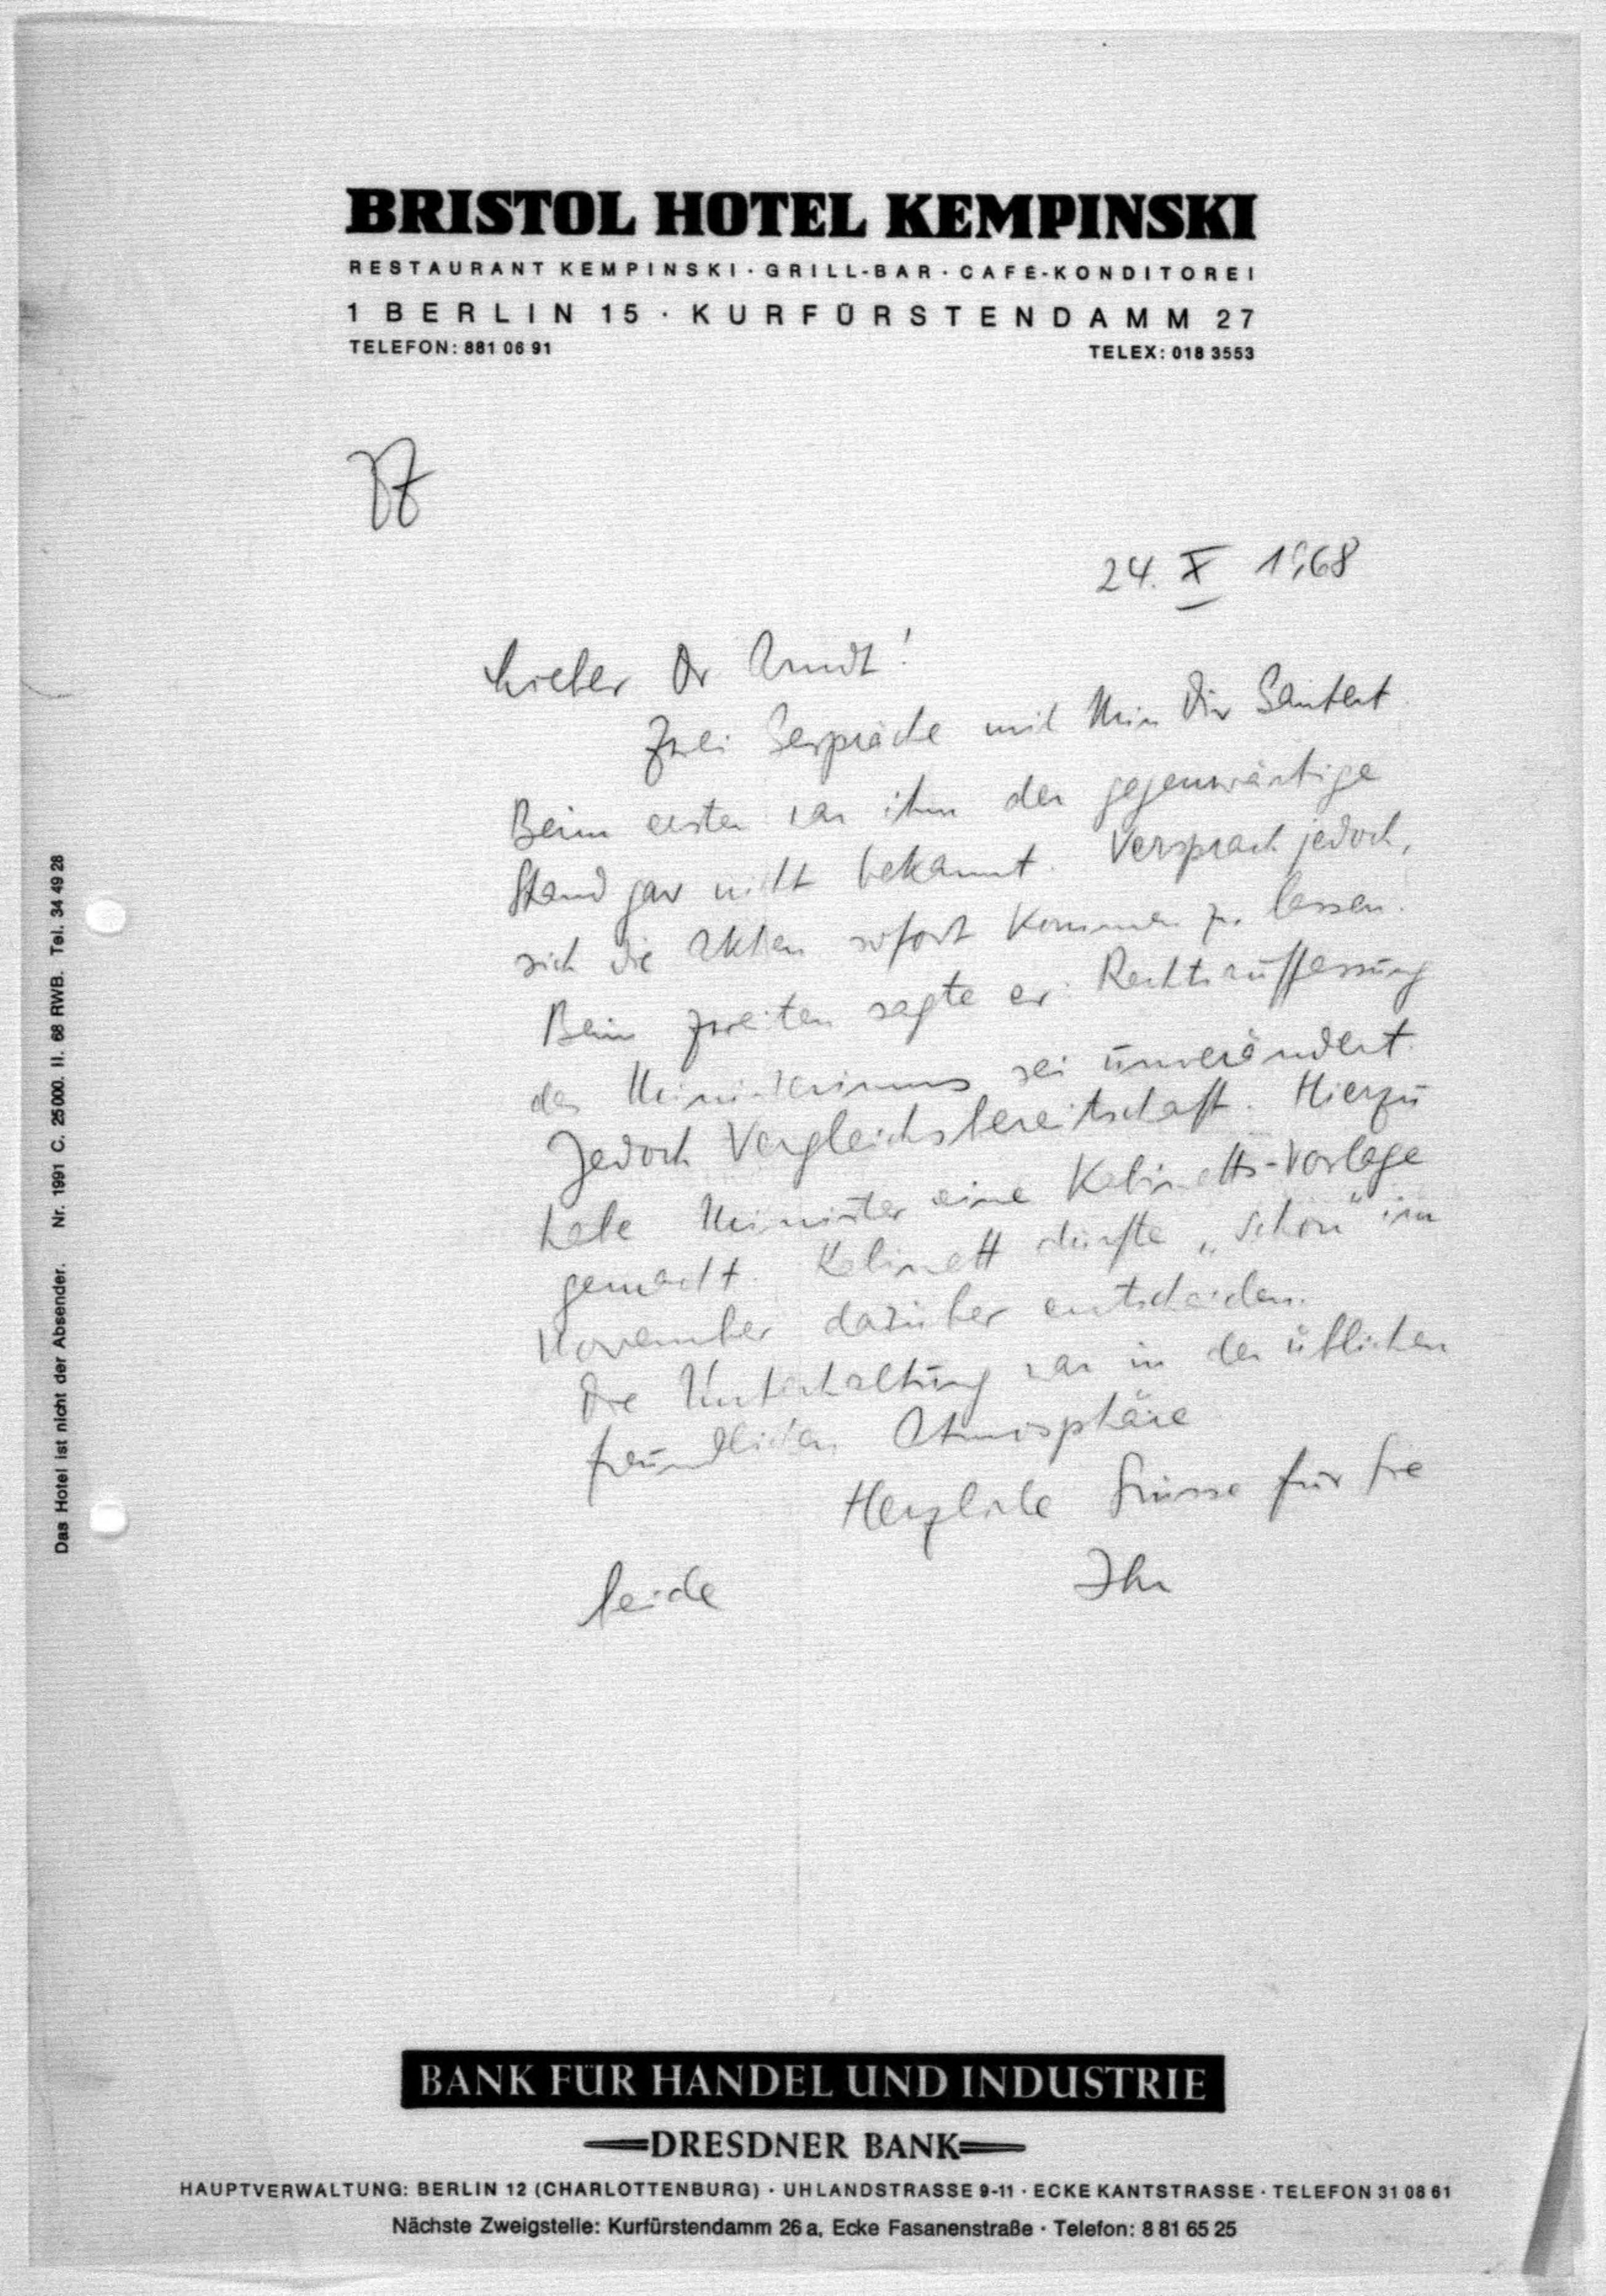 BRISTOL HOTEL KEMPINSKI
RESTAURANT KEMPINSKI · GRILL-BAR · CAFÉ-KONDITOREI
1 BERLIN 15 · KURFÜRSTENDAMM 27
TELEFON: 881 06 91 TELEX: 018 3553
24. X 1968
Lieber Dr Arndt!
Zwei Gespräche mit Min Dir
Beim ersten war ihm der gegenwärtige
Stand gar nicht bekannt. Versprach jedoch,
sich die Akten sofort kommen zu lassen.
Beim zweiten sagte er: Rechtsauffassung
des Ministeriums sei unverändert.
Jedoch Vergleichsbereitschaft. Hierzu
habe Minister eine Kabinetts-Vorlage
gemacht. Kabinett dürfte „schon" im
November darüber entscheiden.
Die Unterhaltung war in der üblichen
freundlichen Atmosphäre
Herzliche Grüsse für Sie
beide Ihr
Das Hotel ist nicht der Absender. Nr. 1991 C. 25000. II. 68 RWB. Tel. 34 49 28
BANK FÜR HANDEL UND INDUSTRIE
DRESDNER BANK
HAUPTVERWALTUNG: BERLIN 12 (CHARLOTTENBURG) · UHLANDSTRASSE 9-11 · ECKE KANTSTRASSE · TELEFON 31 08 61
Nächste Zweigstelle: Kurfürstendamm 26 a, Ecke Fasanenstraße · Telefon: 8 81 65 25